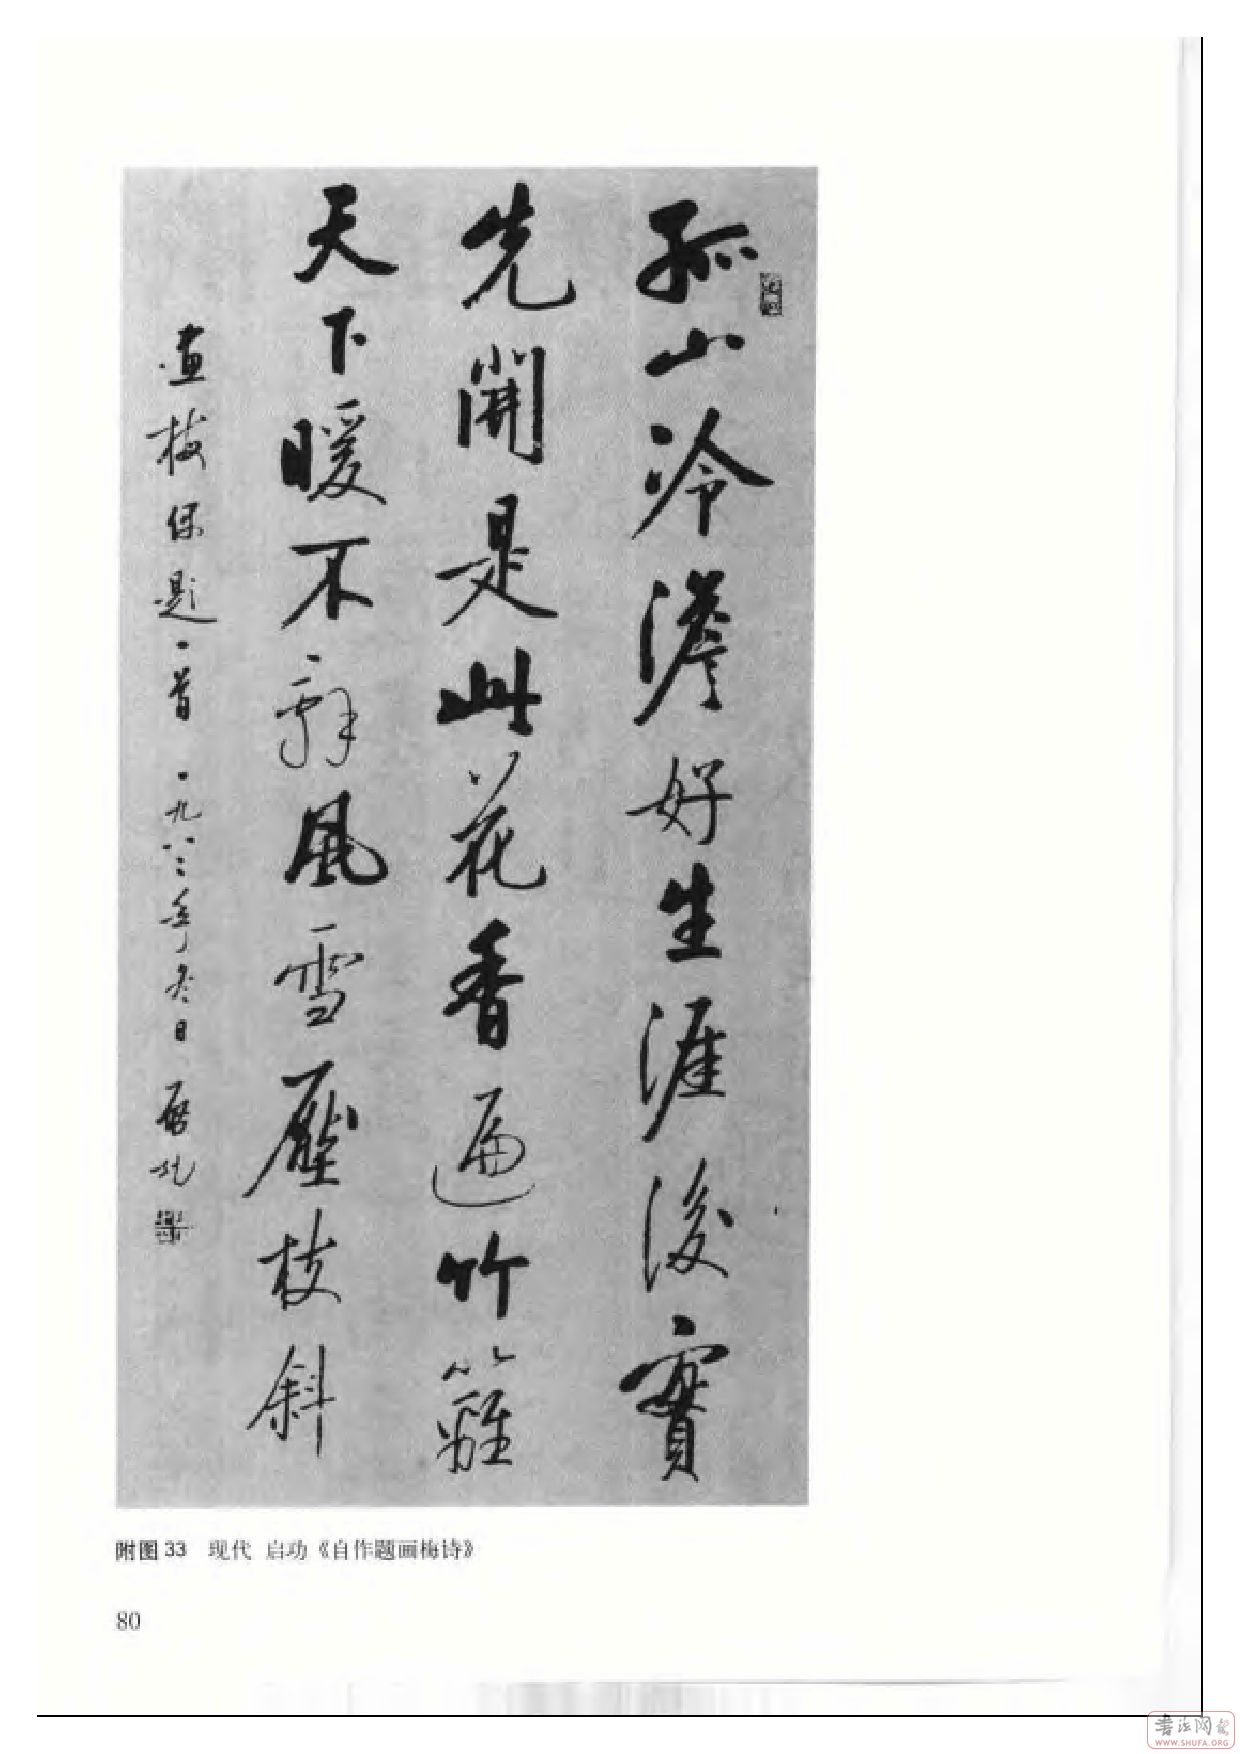 孤山冷澹好生涯後實
先開是此花香遍竹籬
天下暖不辭風雪壓枝斜
畫梅題一首 一九八二年冬日 啟功
附图33 现代 启功《自作题画梅诗》
80
書法网
WWW.SHUFA.ORG